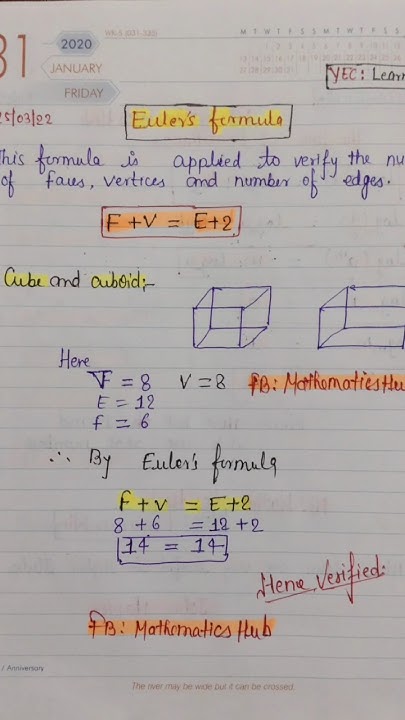 31
2020
JANUARY
FRIDAY
WK-5 (031-335)
M T W T F S S M T W T F S
YEC: Learn
25/03/22
Euler's formula
This formula is applied to verify the nu
of faces, vertices and number of edges.
F + V = E + 2
Cube and cuboid:-
Here
V = 8 V = 8 FB: Mathematics Hu
E = 12
f = 6
∴ By Euler's formula
F + V = E + 2
8 + 6 = 12 + 2
14 = 14
Hence Verified:
FB: Mathematics Hub
/ Anniversary
The river may be wide but it can be crossed.